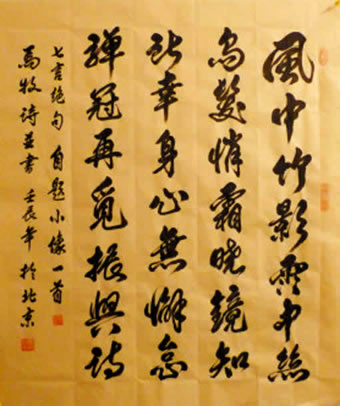 風中竹影雲中絲
烏髮悄霜曉鏡知
所幸身心無懈怠
彈冠再覓振興詩
七言绝句 自題小像一首
馬牧詩並書 壬辰年於北京